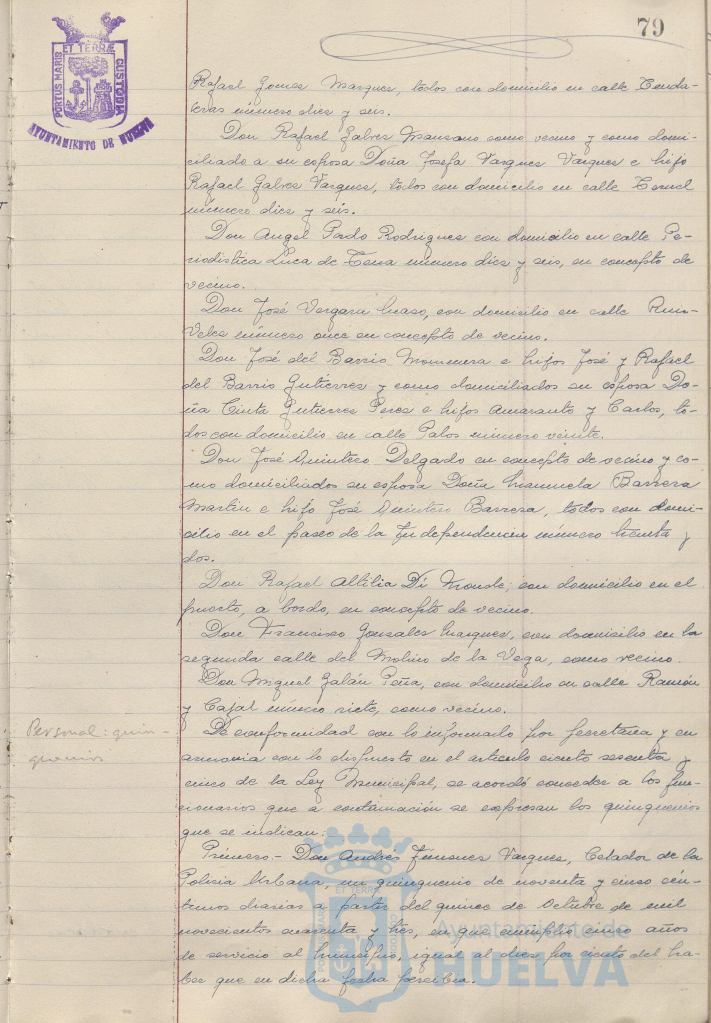 79
PORTUS MARIS ET TERRÆ CUSTODIA
AYUNTAMIENTO DE HUELVA
Rafael Gomes Marques, todos con domicilio en calle Tenda-
leras número dies y seis.
Don Rafael Galves Mansano como vecino y como domi-
ciliado a su esposa Doña Josefa Varques Varques e hijo
Rafael Galves Varques, todos con domicilio en calle Teruel
número dies y seis.
Don Angel Pardo Rodrigues con domicilio en calle Pe-
riodistica Luca de Tena número dies y seis, en concepto de
vecino.
Don José Vergara con domicilio en calle Ruiz
Veles número once en concepto de vecino.
Don José del Barrio e hijos José y Rafael
del Barrio Gutiérres y como domiciliados su esposa Do-
ña Cinta Gutierres Peres e hijos Amaranto y Carlos, to-
dos con domicilio en calle Palos número veinte.
Don José Quintero Delgado en concepto de vecino y co-
mo domiciliados su esposa Doña Manuela Barrera
Martin e hijo José Quintero Barrera, todos con domi-
cilio en el paseo de la Independencia número treinta y
dos.
Don Rafael Altilia Di con domicilio en el
puerto, a bordo, en concepto de vecino.
Don Francisco Gonsales Marques, con domicilio en la
segunda calle del Molino de la Vega, como vecino.
Don Miguel Galán Peña, con domicilio en calle Ramón
y Cajal número siete, como vecino.
Personal: quin-
quenios
De conformidad con lo informado por Secretaria y en
armonia con lo dispuesto en el artículo ciento sesenta y
cinco de la Ley Municipal, se acordó conceder a los fun-
cionarios que a continuación se expresan los quinquenios
que se indican:
Primero.- Don Andrés Jimenes Varques, Celador de la
Policia Urbana, un quinquenio de noventa y cinco cén-
timos diarios a partir del quince de Octubre de mil
novecientos cuarenta y tres, en que cumplio cinco años
de servicio al Municipio, igual al dies por ciento del ha-
ber que en dicha fecha percibia.
Ayuntamiento de
HUELVA